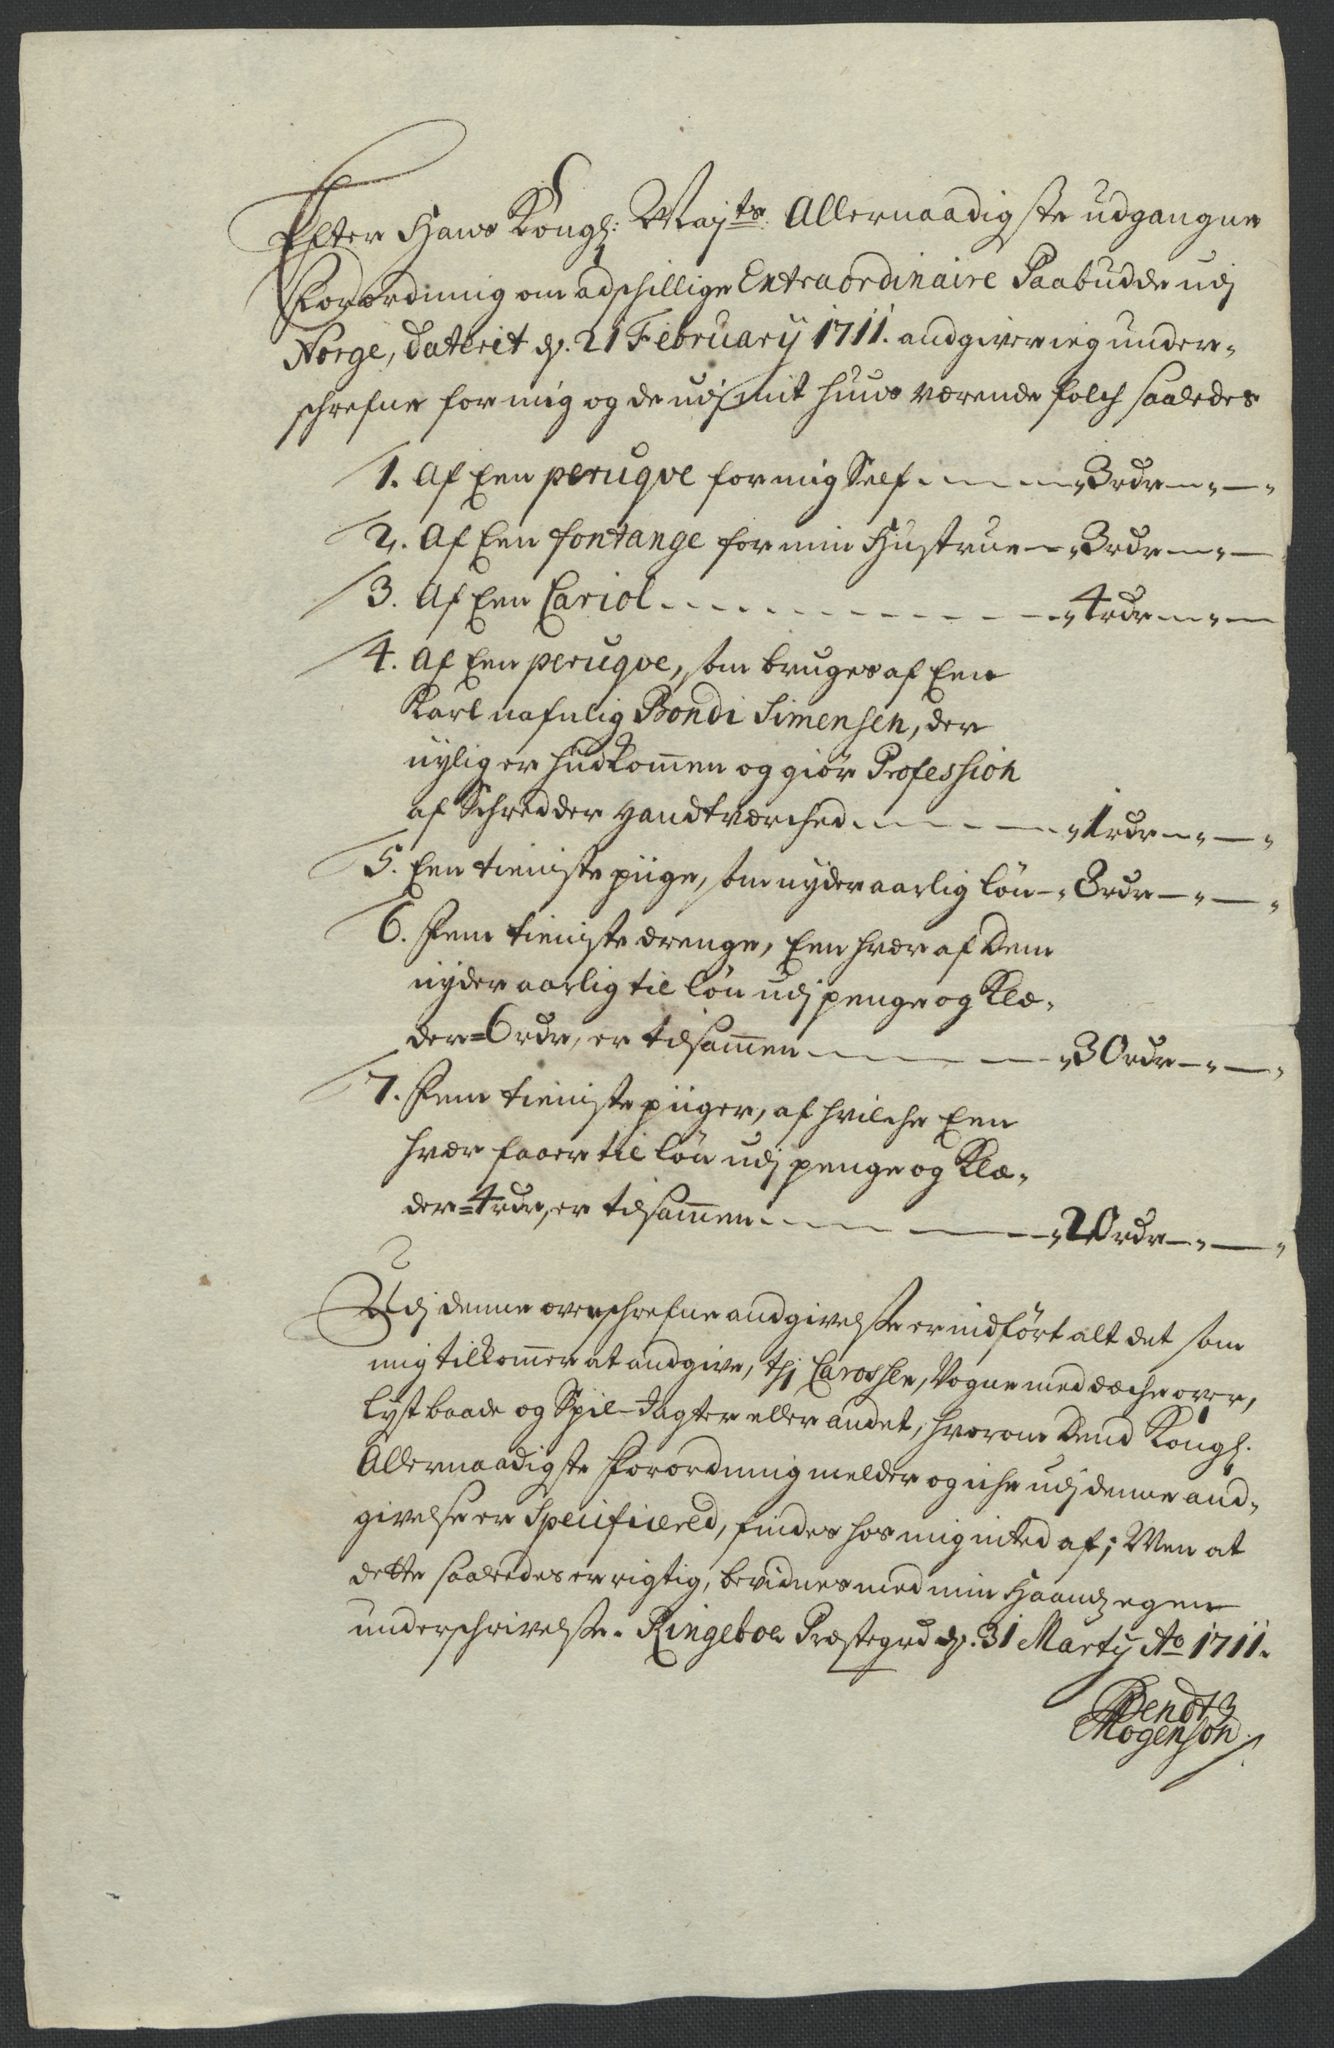 Efter Hans Kongl: Majts: Allernaadigste udgangne
Forordning om adschillige Extraordinaire Paabudde udj
Norge, daterit d. 21 February 1711. andgiver ieg under-
schrefne for mig og de udj mit huus værende folch saaledes
1. Af Een peruqve for mig Self . - - - - 3 rdr - " - "
2. Af Een fontange for min Hustrue - - 3 rdr - " - "
3. Af Een Cariol . - - - - - - - - - - 4 rdr - " - "
4. Af Een peruqve, som bruges af Een
Karl nafnlig Bondi Simensen, der
nylig er hidkommen og giør Profession
af Schredder Handtværched . - - - - - 1 rdr - " - "
5. Een tieniste piige, som nyder aarlig løn - 8 rdr - " - "
6. Fem tieniste drenge, Een hver af Dem
nyder aarlig til løn udj penge og Klæ-
der = 6 rdr, er tilsammen - - - - - 30 rdr - " - "
7. Fem tieniste piiger, af hvilche Een
hver faaer til løn udj penge og Klæ-
der = 4 rdr, er tilsammen . - - - - - 20 rdr - " - "
Udj denne overschrefne andgivelsse er indført alt det som
mig tilkommer at andgive, thj Carosser, Vogne med dæche over,
Lystbaade og Spil-Jagter eller andet, hvorom Dend Kongl:
Allernaadigste Forordning melder og iche udj denne and-
givelse er Specificered, findes hos mig inted af; Men at
dette saaledes er rigtig, bevidnes med min Haandz egen
underschrivelsse. Ringeboe Præstegrd d. 31 Marty Ao 1711.
Bendt
Mogensøn